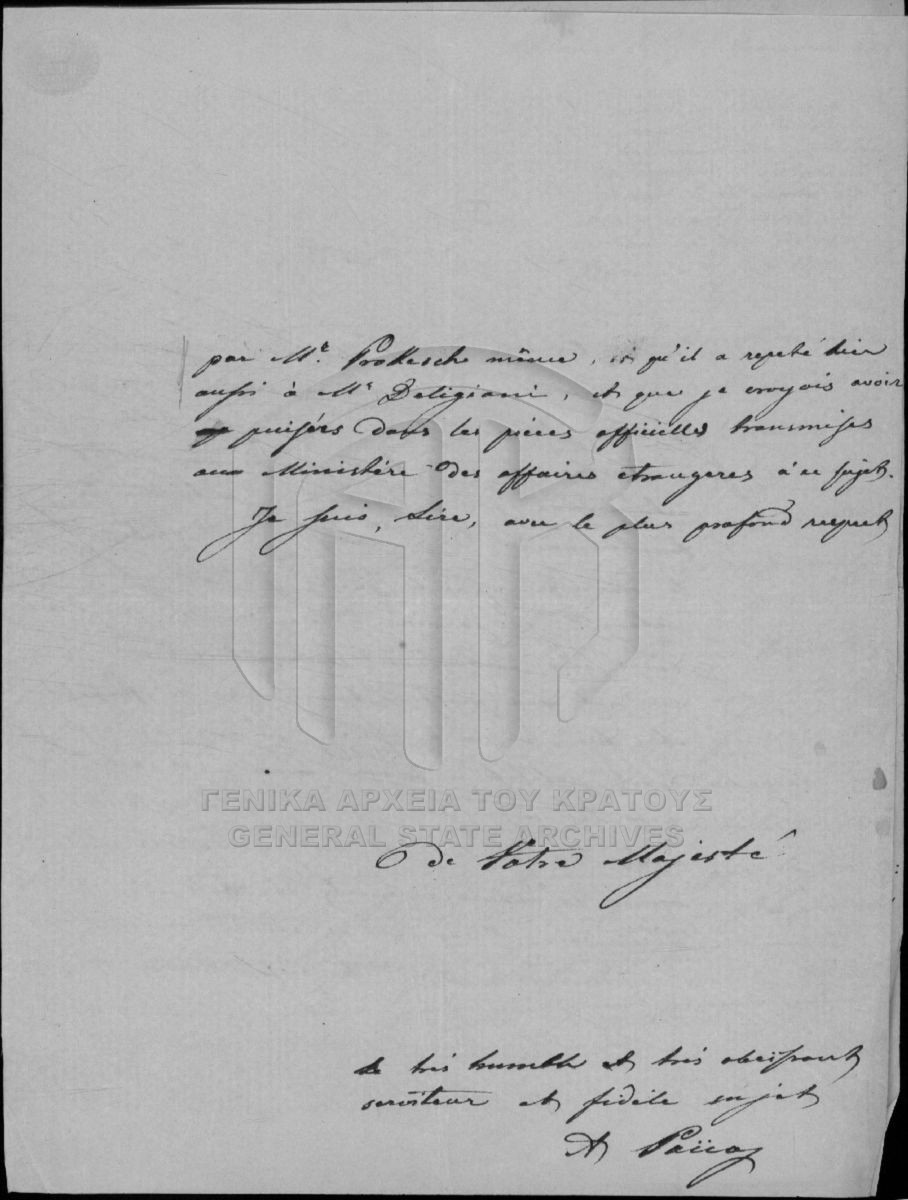 par Mr. Prokesch même, et qu'il a repeté hier
aussi à Mr Deligiani, et que je croyois avoir
puisérs dans les pièces officielles transmises
aux Ministère des affaires etrangeres à ce sujet.
Je suis, Sire, avec le plus profond respect
ΓΕΝΙΚΑ ΑΡΧΕΙΑ ΤΟΥ ΚΡΑΤΟΥΣ
GENERAL STATE ARCHIVES
de Votre Majesté
le très humble et très obeïssant
serviteur et fidèle sujet
A Païcos